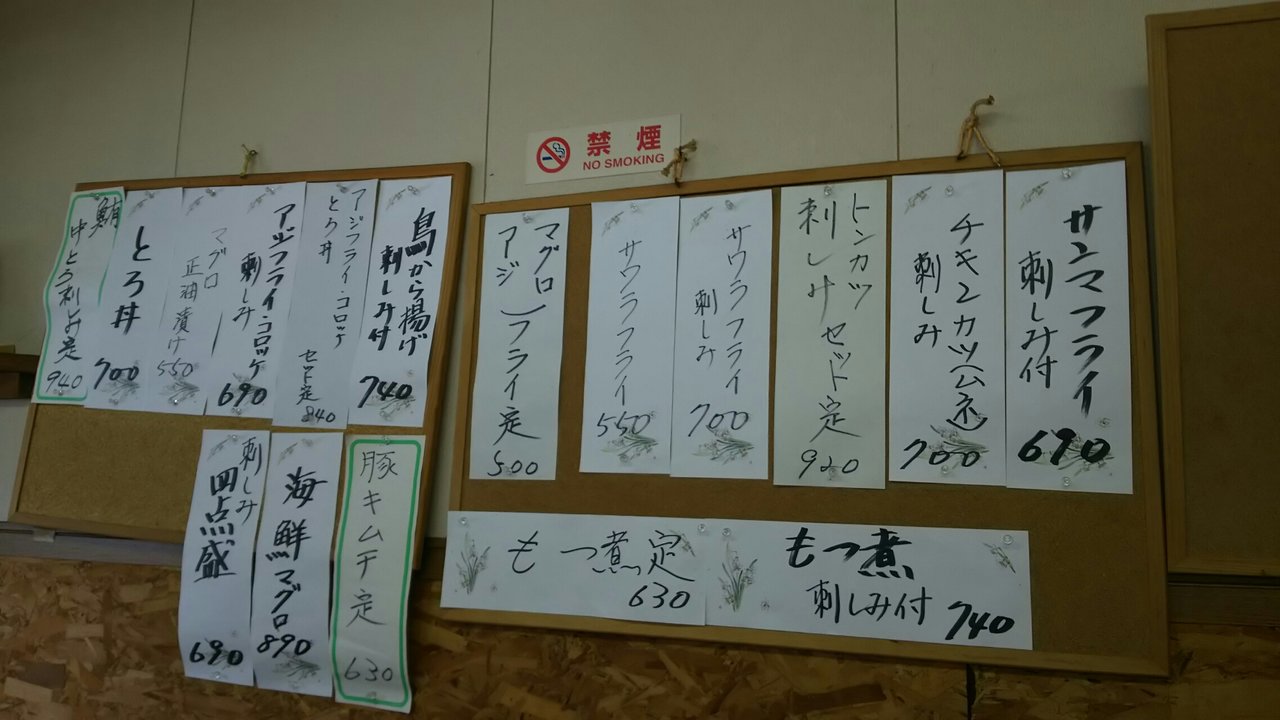 禁煙
NO SMOKING
サンマフライ
刺しみ付
690
チキンカツ(ムネ)
刺しみ
700
トンカツ
刺しみ セット定
920
サワラフライ
刺しみ
700
サワラフライ
550
マグロ
アジ
フライ定
500
もつ煮定
630
もつ煮
刺しみ付
740
鳥から揚げ
刺しみ付
740
アジフライ・コロッケ
とろ丼
セット定
840
アジフライ・コロッケ
刺しみ
690
マグロ
正油漬け
550
とろ丼
700
鮪
中とろ刺しみ定
940
豚キムチ定
630
海鮮マグロ
890
刺しみ
四点盛
690